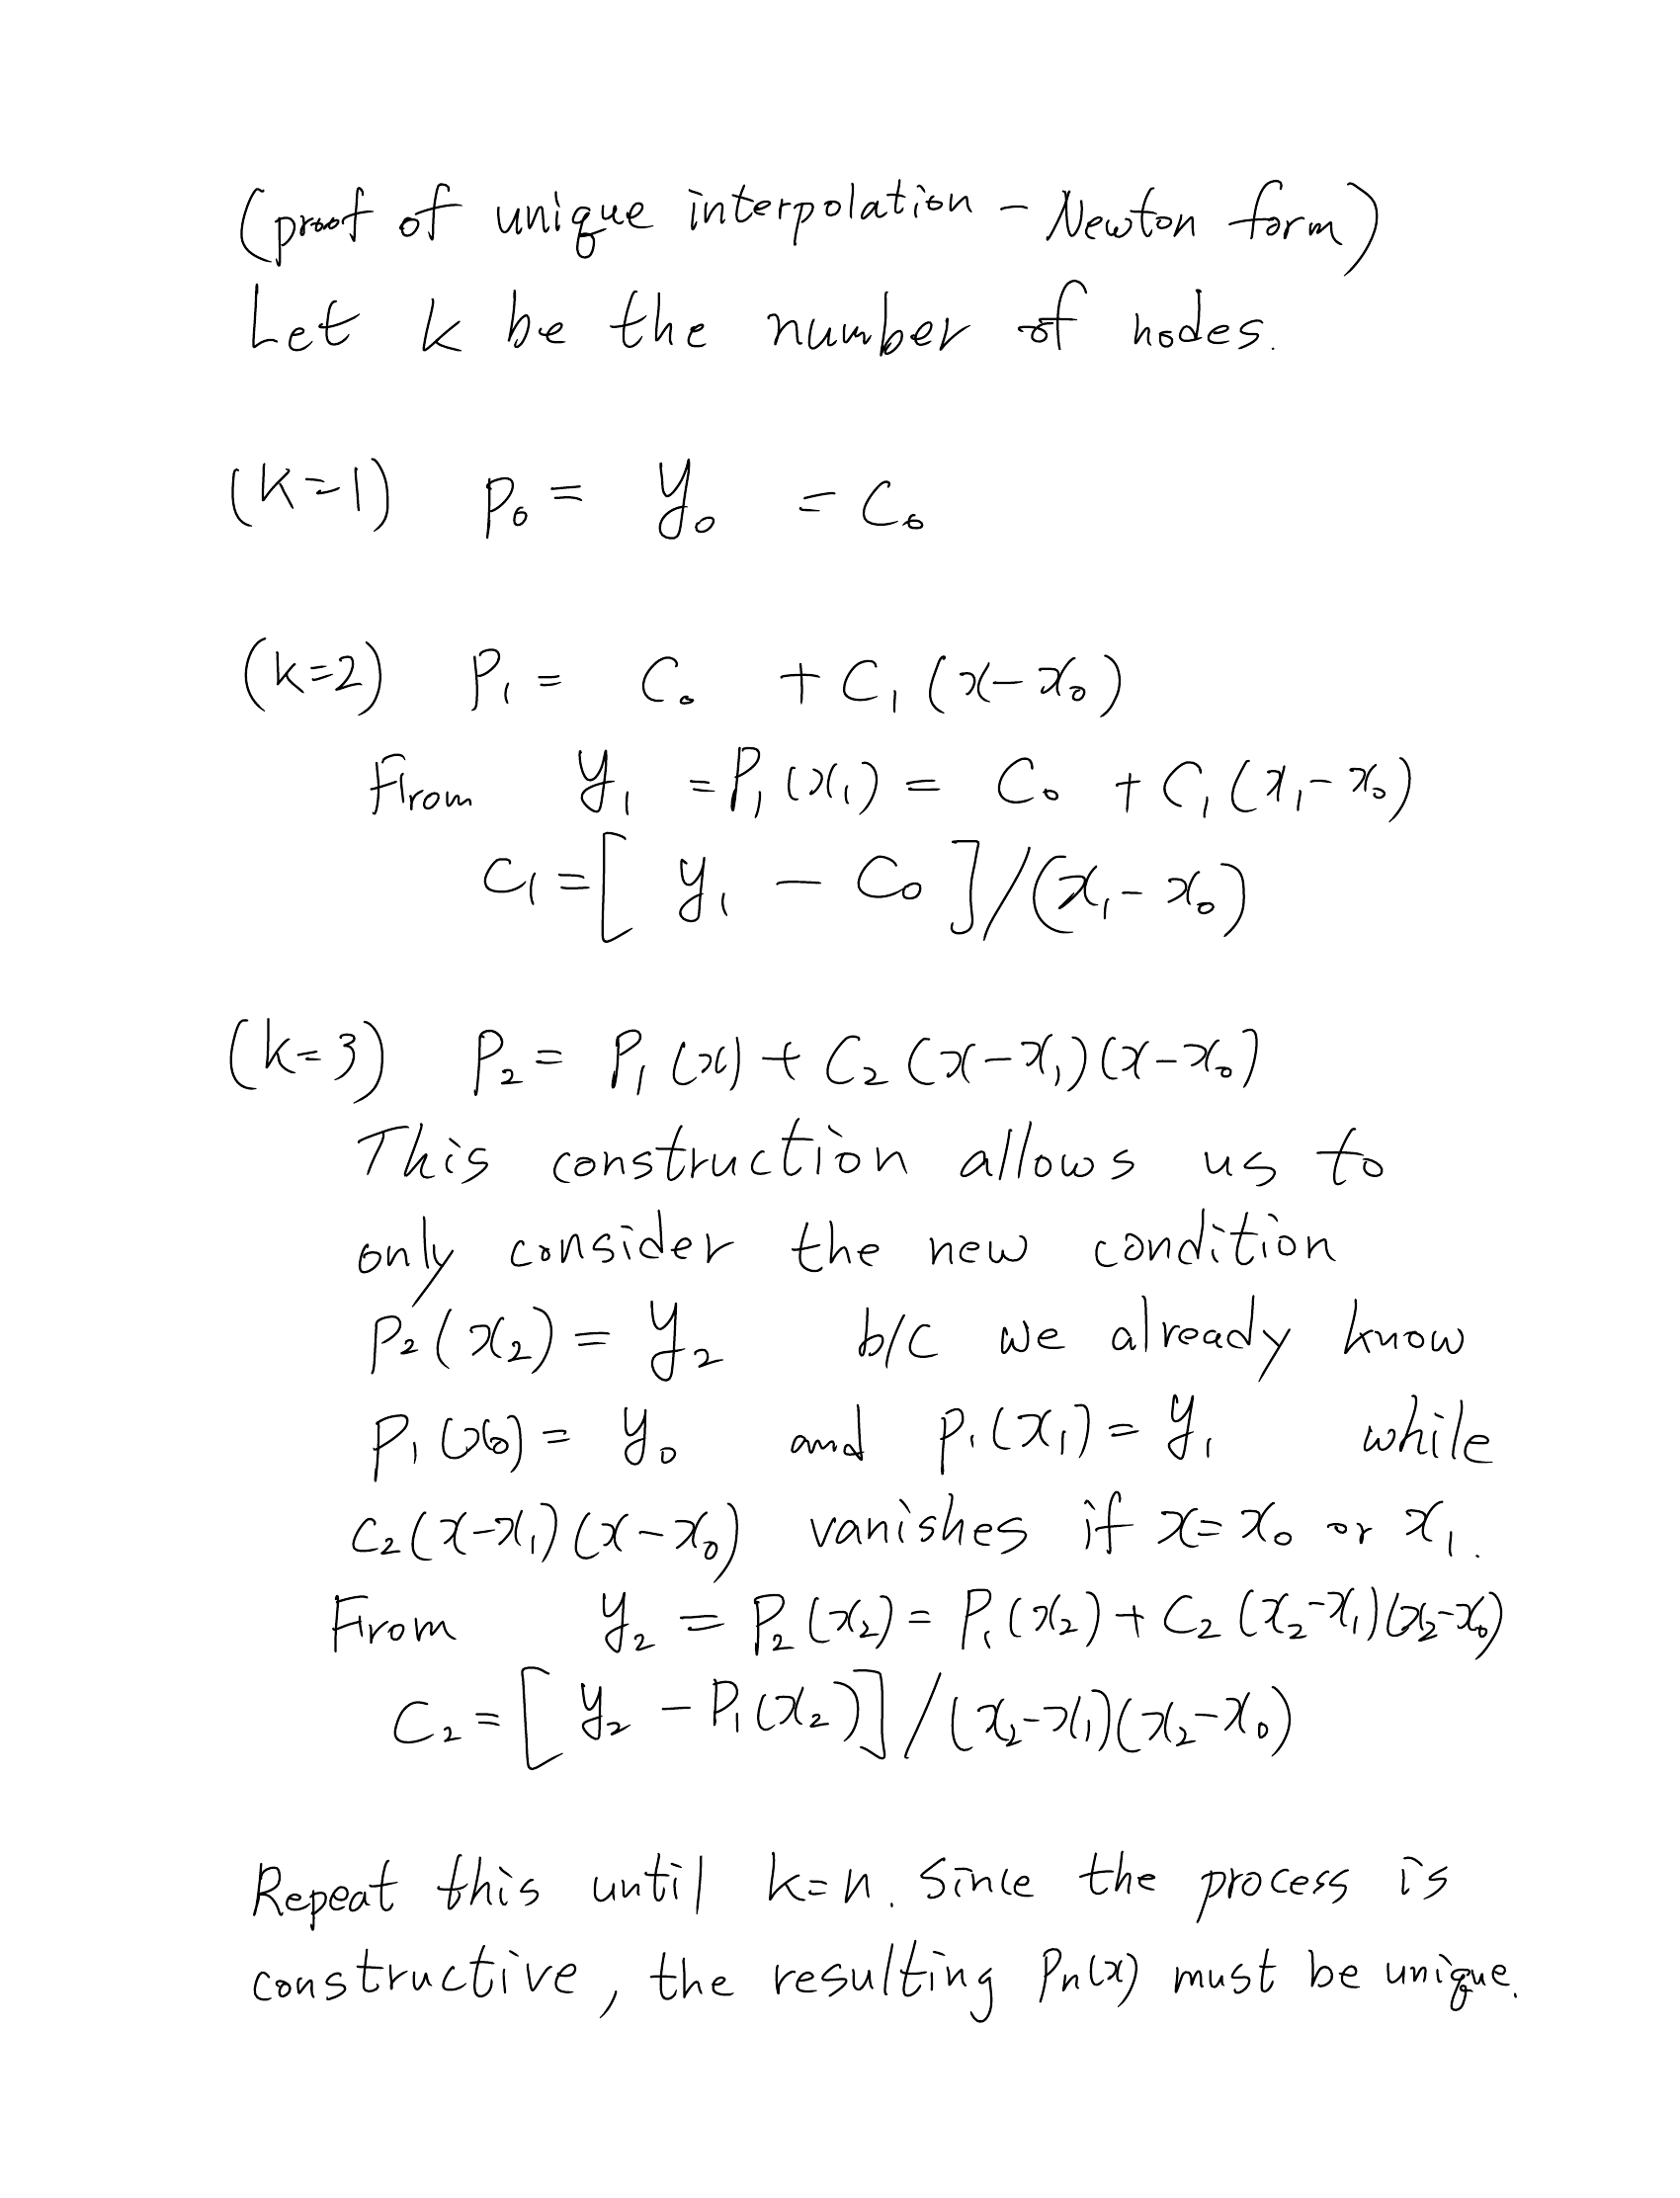 (proof of unique interpolation - Newton form)
Let k be the number of nodes.
(k=1) P₀ = y₀ = C₀
(k=2) P₁ = C₀ + C₁(x-x₀)
From y₁ = P₁(x₁) = C₀ + C₁(x₁-x₀)
C₁ = [y₁ - C₀]/(x₁-x₀)
(k=3) P₂ = P₁(x) + C₂(x-x₁)(x-x₀)
This construction allows us to
only consider the new condition
P₂(x₂) = y₂ b/c we already know
P₁(x₀) = y₀ and P₁(x₁) = y₁ while
C₂(x-x₁)(x-x₀) vanishes if x=x₀ or x₁.
From y₂ = P₂(x₂) = P₁(x₂) + C₂(x₂-x₁)(x₂-x₀)
C₂ = [y₂ - P₁(x₂)]/(x₂-x₁)(x₂-x₀)
Repeat this until k=n. Since the process is
constructive, the resulting Pn(x) must be unique.